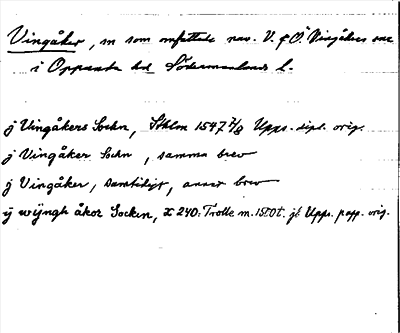 Vingåker, m som omfattade nuv. V. & Ö. Vingåkers snr
i Oppunda hd Södermanlands l.
j Vingåkers Sochn, Sthlm 1547 7/8 Upps. dipl. orig.
j Vingåker Sochn, samma brev
j Vingåker, samtidigt, annat brev
ij wijngh åkor Socken, X 240: Trolle m. 1510t. jb Upps. papp. orig.